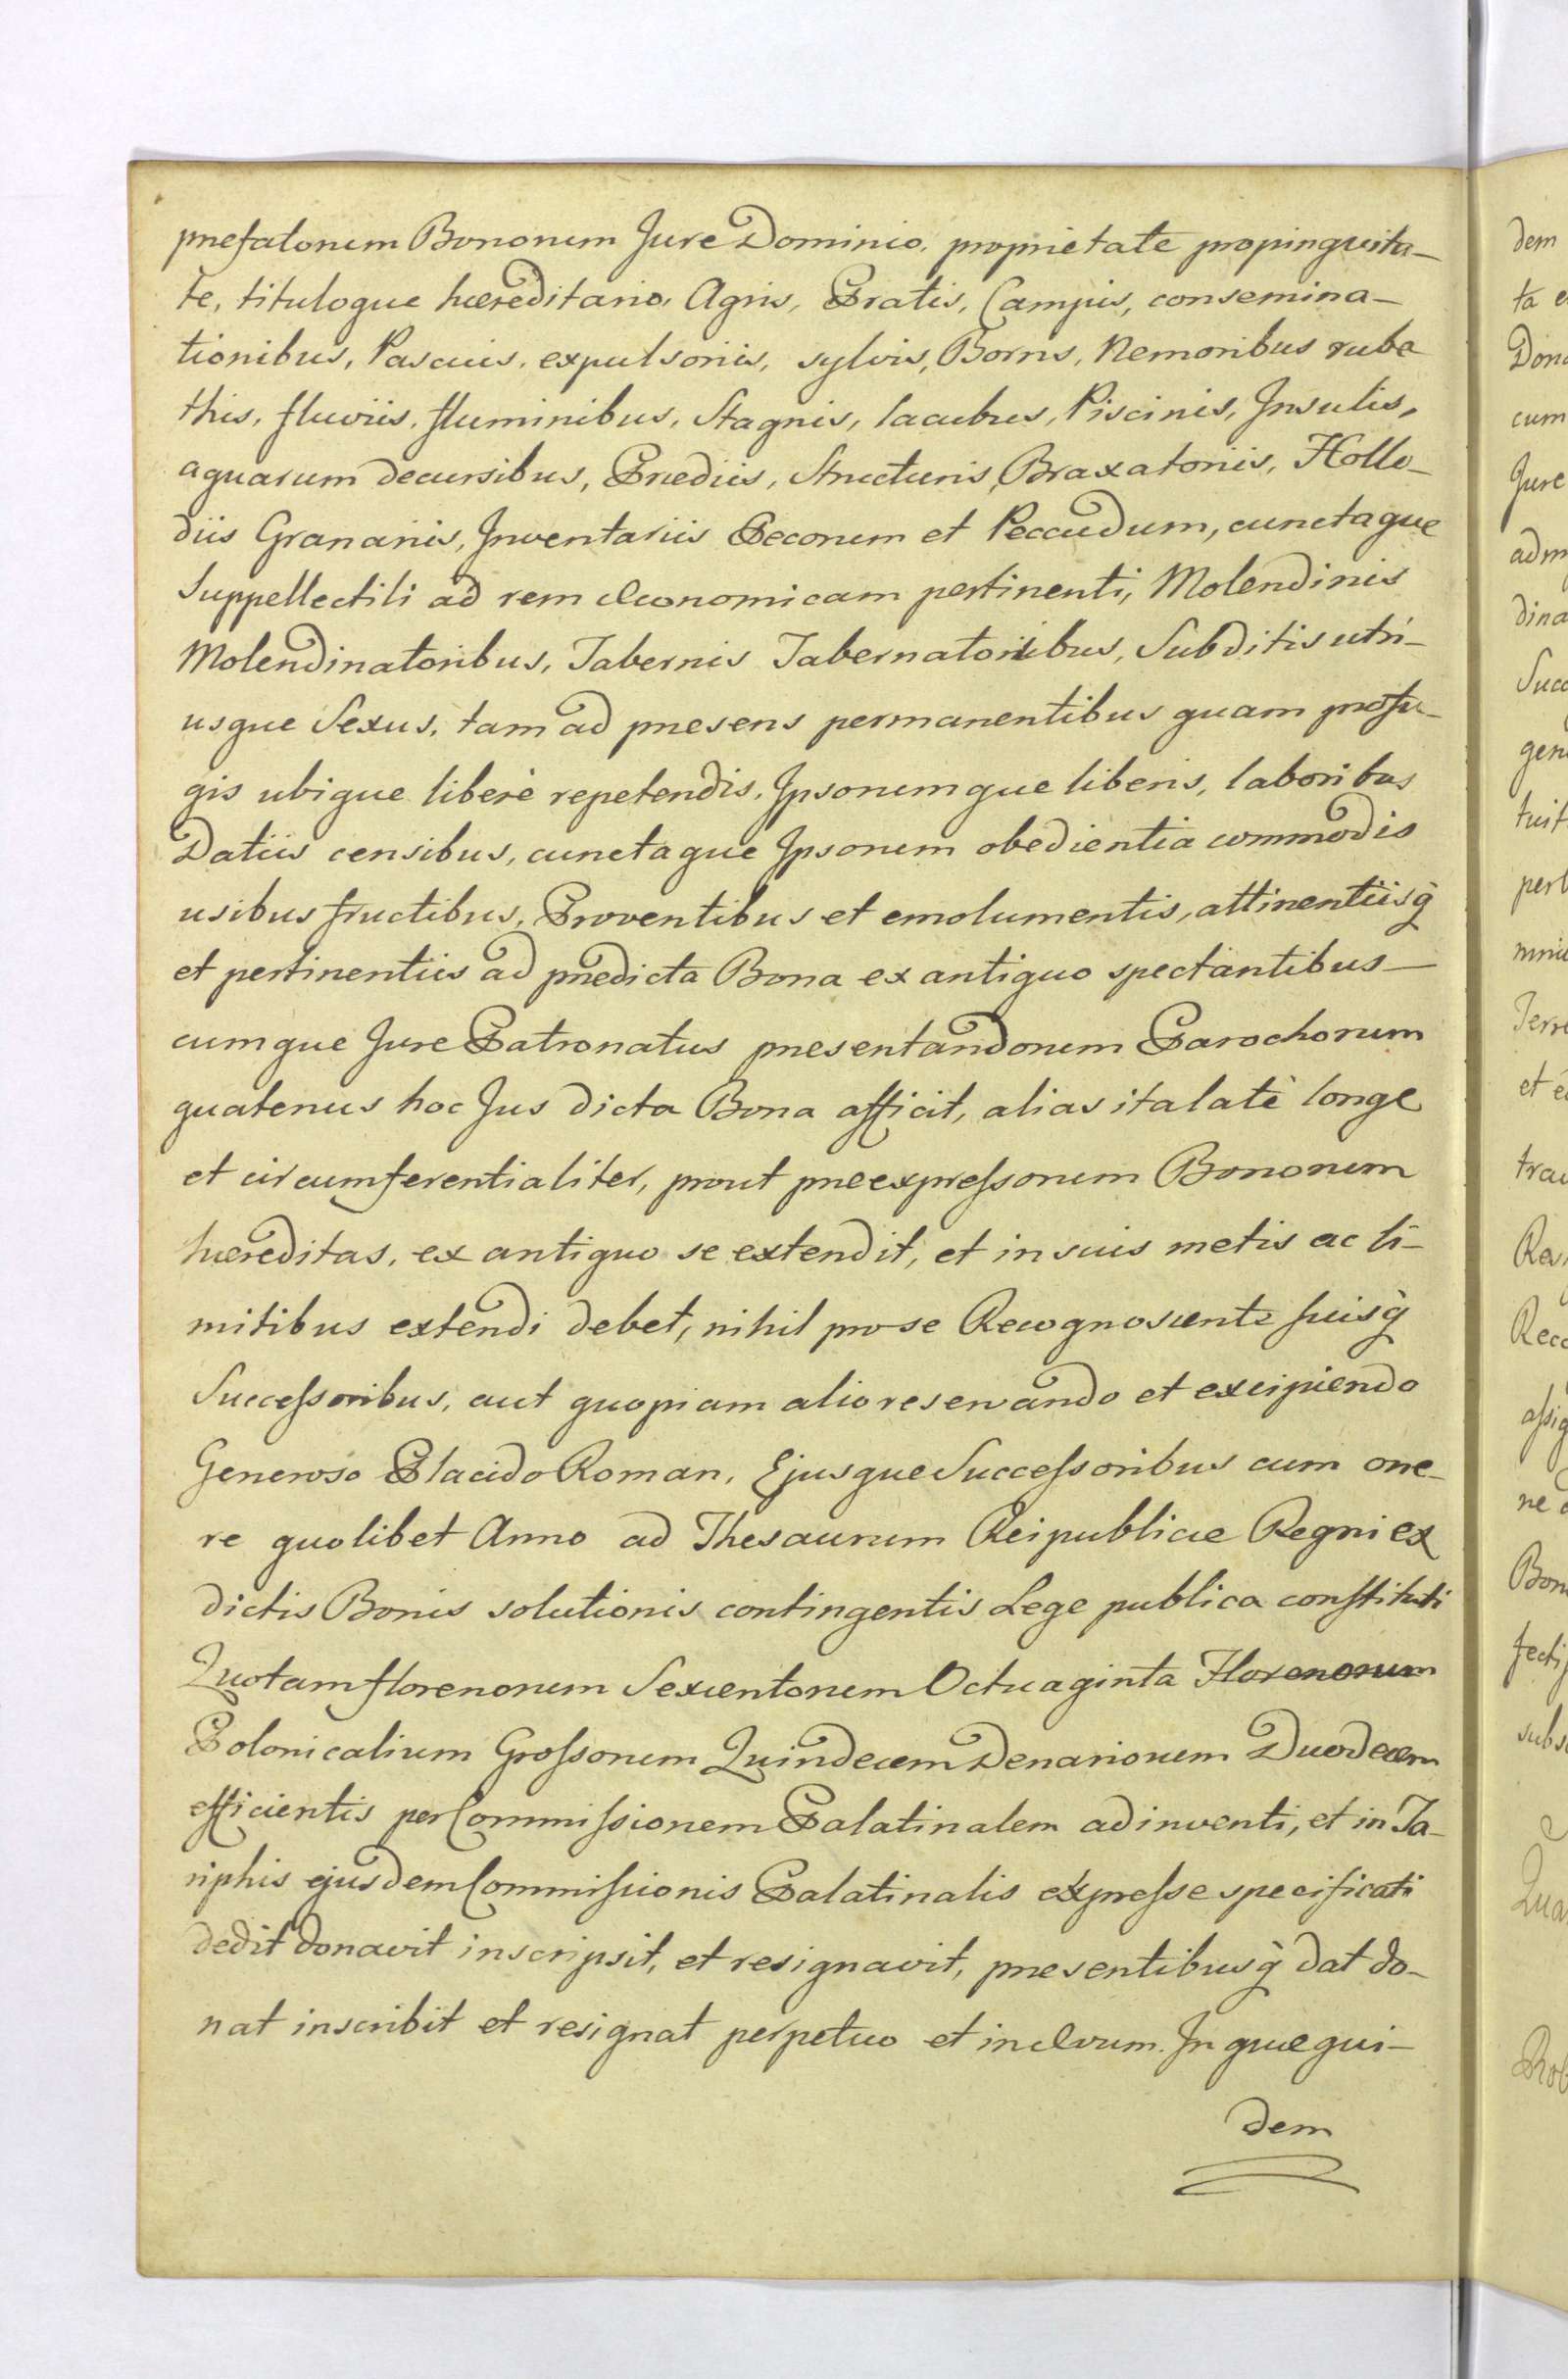 præfatorum Bonorum Jure Dominio, proprietate propinquita-
te, tituloque hæreditario, Agris, Pratis, Campis, consemina-
tionibus, Pascuis, expulsoriis, sylvis, Borris, Nemoribus rube
this, fluviis, fluminibus, Stagnis, lacubus, Piscinis, Insulis,
aquarum decursibus, Prædiis, Structuris, Braxatoriis, Hollo-
diis Granariis, Inventariis Pecorum et Peccudum, cunctaque
Suppellectili ad rem æconomicam pertinenti, Molendinis
Molendinatoribus, Tabernis Tabernatoribus, Subditis utri-
usque Sexus, tam ad præsens permanentibus quam profu-
gis ubique liberè repetendis, Ipsorumque liberis, laboribus
Datiis censibus, cunctaque Ipsorum obedientia commodis
usibus fructibus, Proventibus et emolumentis, attinentiisq̀
et pertinentiis ad prædicta Bona ex antiquo spectantibus —
cumque Jure Patronatus præsentandorum Parochorum
quatenus hoc Jus dicta Bona afficit, alias ita latè longe
et circumferentialiter, prout præexpressorum Bonorum
hæreditas, ex antiquo se extendit, et in suis metis ac li-
mitibus extendi debet, nihil pro se Recognoscente suisq̀
Successoribus, aut quopiam alio reservando et excipiendo
Generoso Placido Roman, Ejusque Successoribus cum one-
re quolibet Anno ad Thesaurum Reipublicæ Regni ex
dictis Bonis solutionis contingentis Lege publica constituti
Quotam florenorum Sexcentorum Octuaginta Florenorum
Polonicalium Grossorum Quindecem Denariorum Duodecem
efficientis per Commissionem Palatinalem adinventi, et in Ta-
riphis ejusdem Commissionis Palatinalis expresse specificati
dedit donavit inscripsit, et resignavit, præsentibusq̀ dat do-
nat inscribit et resignat perpetuo et in ævum. In quæ qui-
dem